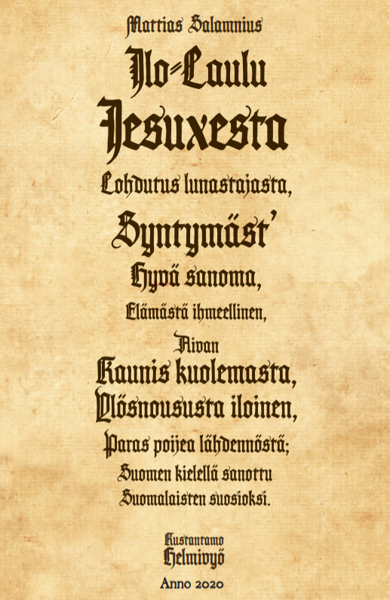 Mattias Salamnius
Ilo=Laulu
Jesuxesta
Lohdutus lunastajasta,
Syntymäst'
Hyvä sanoma,
Elämästä ihmeellinen,
Aivan
Kaunis kuolemasta,
Ylösnoususta iloinen,
Paras poijea lähdennöstä;
Suomen kielellä sanottu
Suomalaisten suosioksi.
Kustantamo
Helmivyö
Anno 2020